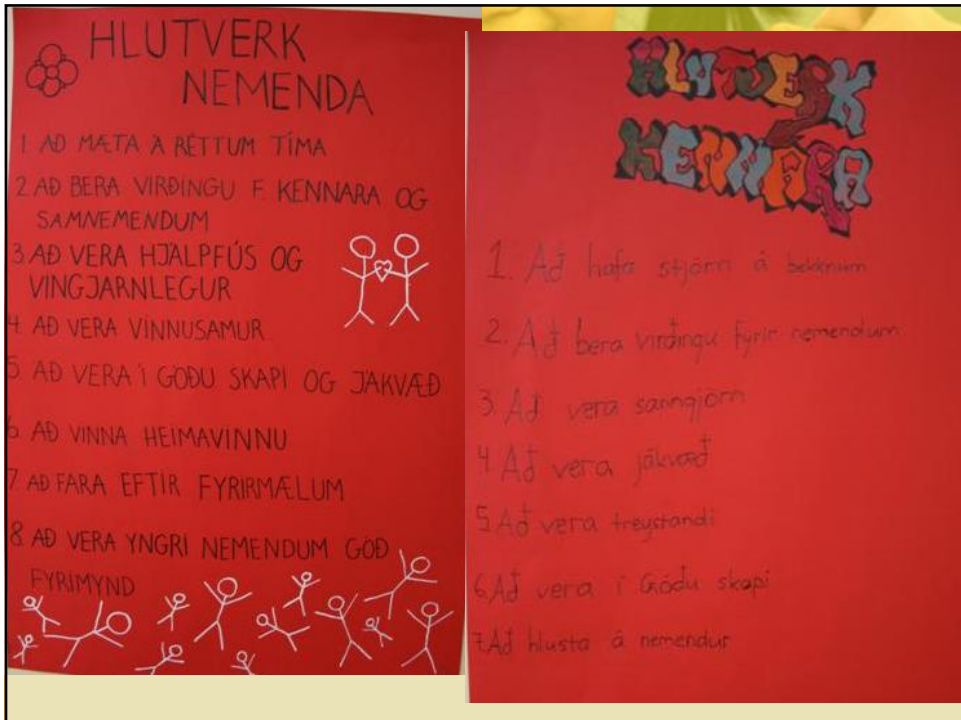 HLUTVERK
NEMENDA
1 AÐ MÆTA Á RÉTTUM TÍMA
2. AÐ BERA VIRÐINGU F. KENNARA OG
SAMNEMENDUM
3. AÐ VERA HJÁLPFÚS OG
VINGJARNLEGUR
4. AÐ VERA VINNUSAMUR
5 AÐ VERA Í GÓÐU SKAPI OG JÁKVÆÐ
6. AÐ VINNA HEIMAVINNU
7. AÐ FARA EFTIR FYRIRMÆLUM
8. AÐ VERA YNGRI NEMENDUM GÓÐ
FYRIMYND
HLUTVERK
KENNARA
1. Að hafa stjórn á bekknum
2. Að bera virðingu fyrir nemendum
3. Að vera sanngjörn
4. Að vera jákvæð
5. Að vera treystandi
6. Að vera í Góðu skapi
7. Að hlusta á nemendur